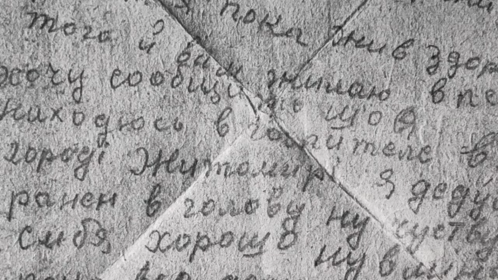 я пока жив здо
того й вам жилаю
хочу сообщить шо я
находюсь в госпителе в
городі Житомирі. Я деду
ранен в голову ну чуству
смбя хорошо ну в